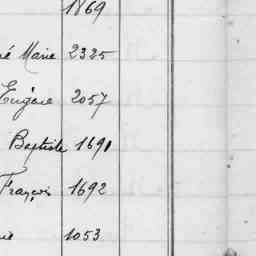 1869
né Marie 2325
Eugène 2057
Baptiste 1691
François 1692
rie 1053